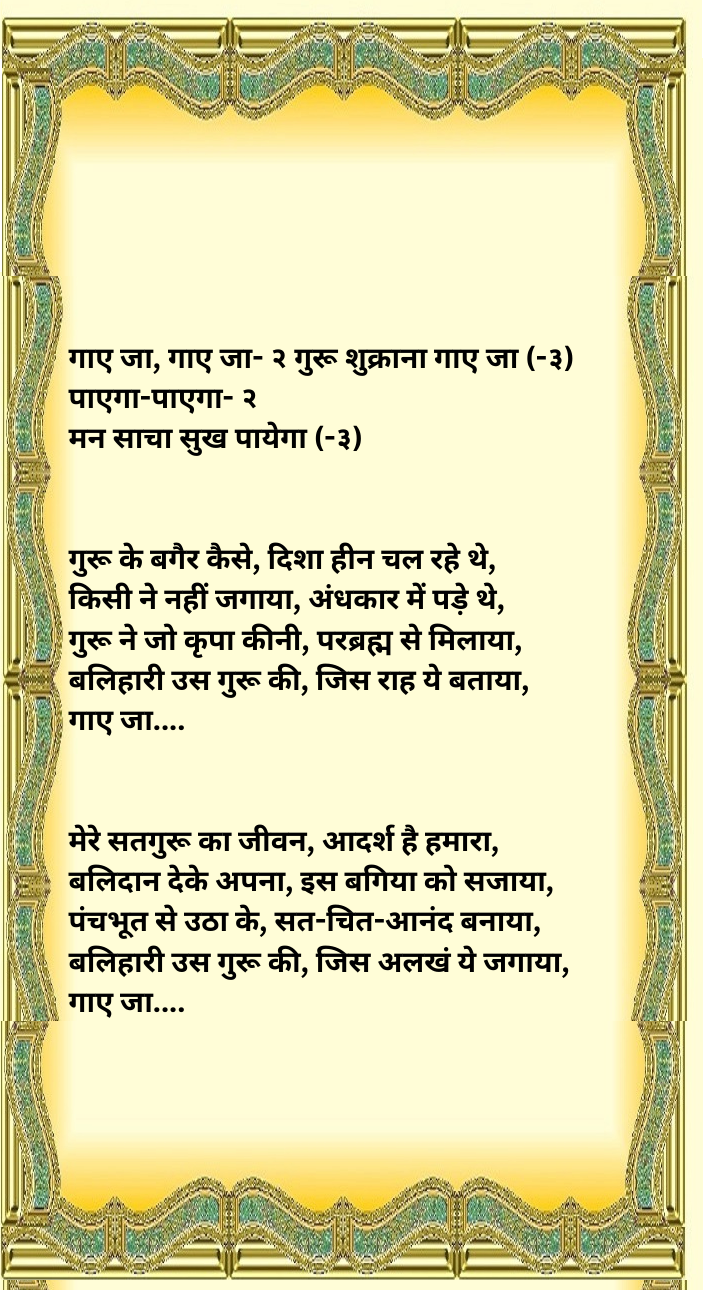 गाए जा, गाए जा- २ गुरू शुक्राना गाए जा (-३)
पाएगा-पाएगा- २
मन साचा सुख पायेगा (-३)
गुरू के बगैर कैसे, दिशा हीन चल रहे थे,
किसी ने नहीं जगाया, अंधकार में पड़े थे,
गुरू ने जो कृपा कीनी, परब्रह्म से मिलाया,
बलिहारी उस गुरू की, जिस राह ये बताया,
गाए जा....
मेरे सतगुरू का जीवन, आदर्श है हमारा,
बलिदान देके अपना, इस बगिया को सजाया,
पंचभूत से उठा के, सत-चित-आनंद बनाया,
बलिहारी उस गुरू की, जिस अलखं ये जगाया,
गाए जा....